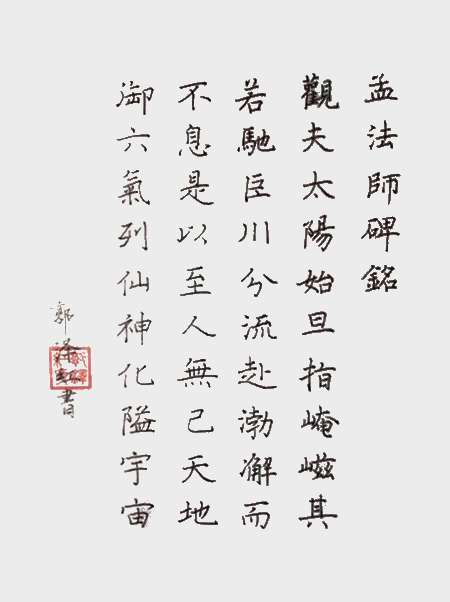 孟法師碑銘
觀夫太陽始旦指崦嵫其
若馳臣川分流赴渤澥而
不息是以至人無己天地
御六氣列仙神化隘宇宙
郭書